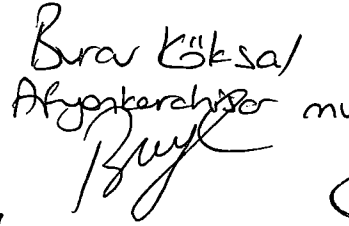 Burcu Köksal
Afyonkarahisar mu